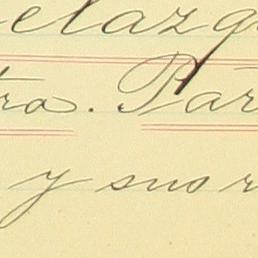 elazq
tra. Par
y suor